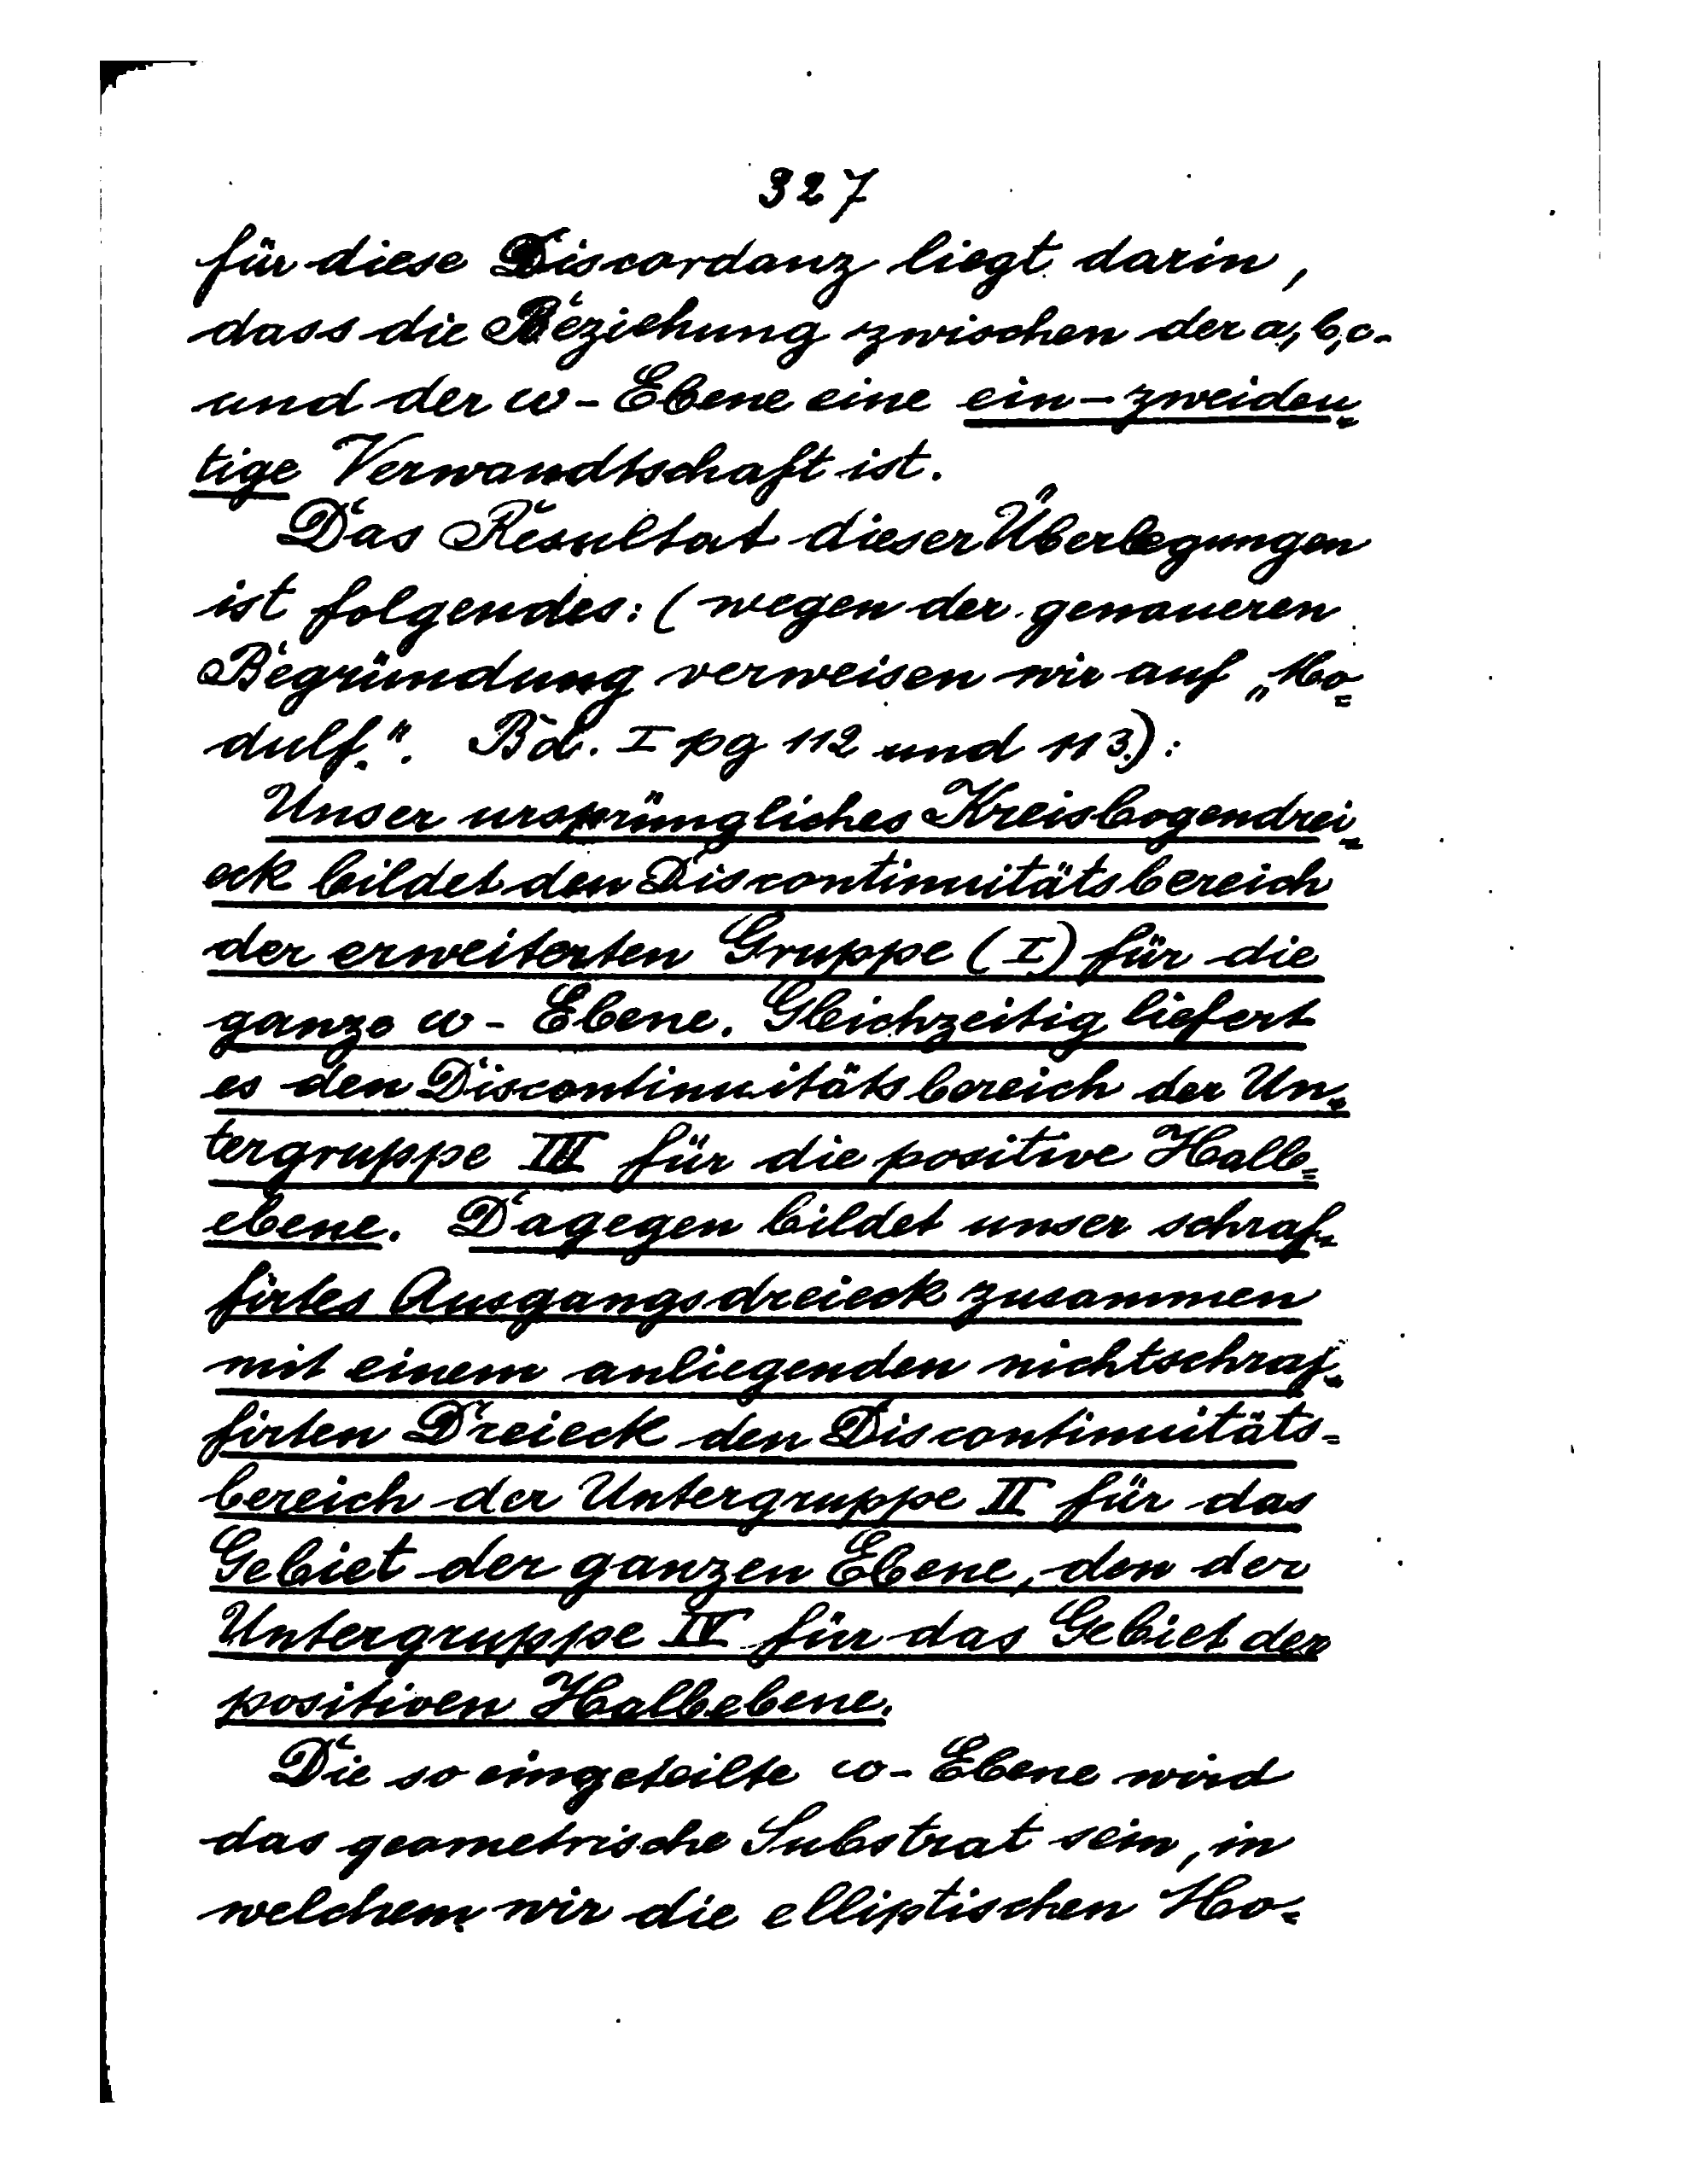 327
für diese Discordanz liegt darin,
dass die Beziehung zwischen der a, b, c-
und der ω-Ebene eine ein-zweideu-
tige Verwandtschaft ist.
Das Resultat dieser Überlegungen
ist folgendes: (wegen der genaueren
Begründung verweisen wir auf „Mo=
dulf.". Bd. I pg 112 und 113.):
Unser ursprüngliches Kreisbogendrei-
eck bildet den Discontinuitätsbereich
der erweiterten Gruppe (I) für die
ganze ω-Ebene. Gleichzeitig liefert
es den Discontinuitätsbereich der Un=
tergruppe III für die positive Halb=
ebene. Dagegen bildet unser schraf-
firtes Ausgangsdreieck zusammen
mit einem anliegenden nichtschraf-
firten Dreieck den Discontinuitäts=
bereich der Untergruppe II für das
Gebiet der ganzen Ebene, den der
Untergruppe IV für das Gebiet der
positiven Halbebene.
Die so eingeteilte ω-Ebene wird
das geometrische Substrat sein, in
welchem wir die elliptischen Mo=